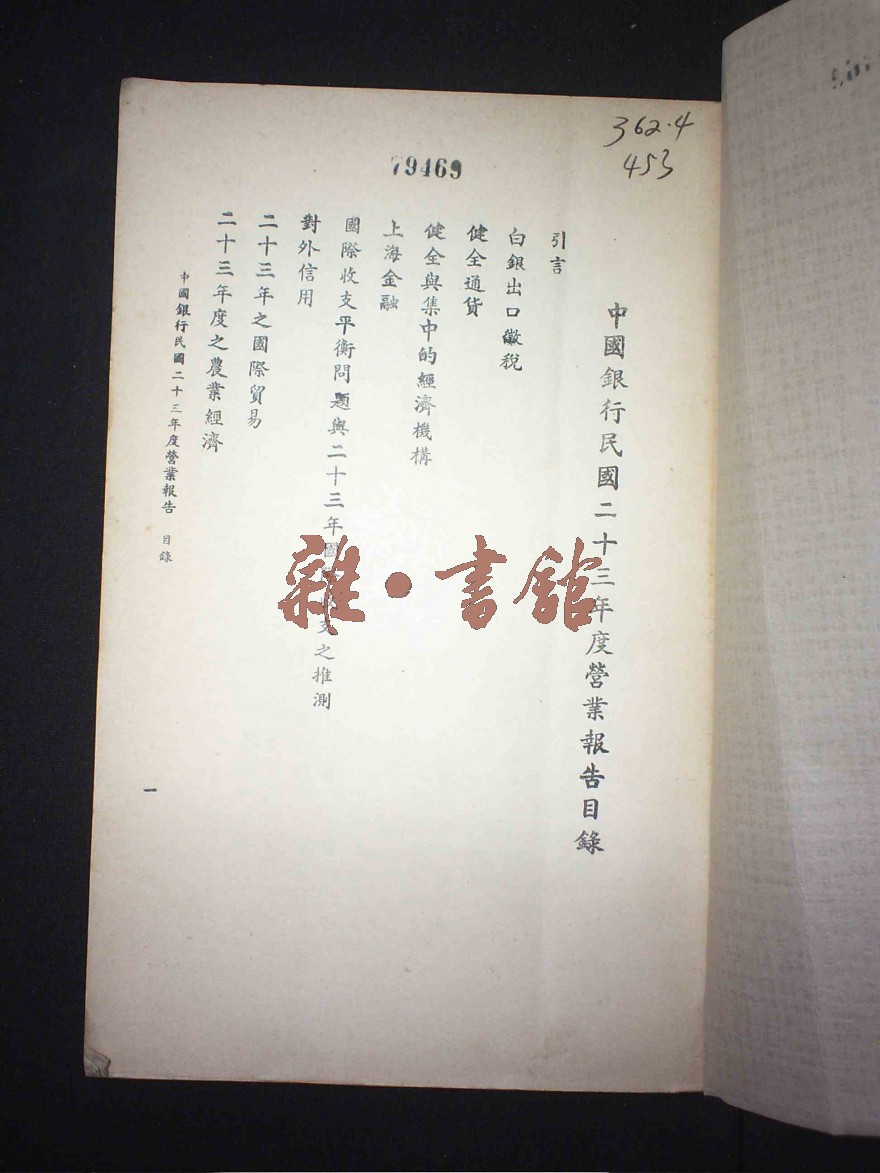 362.4
453
79469
中國銀行民國二十三年度營業報告目錄
引言
白銀出口徵稅
健全通貨
健全與集中的經濟機構
上海金融
國際收支平衡問題與二十三年國際收支之推測
對外信用
二十三年之國際貿易
二十三年度之農業經濟
中國銀行民國二十三年度營業報告 目錄
一
雜·書館